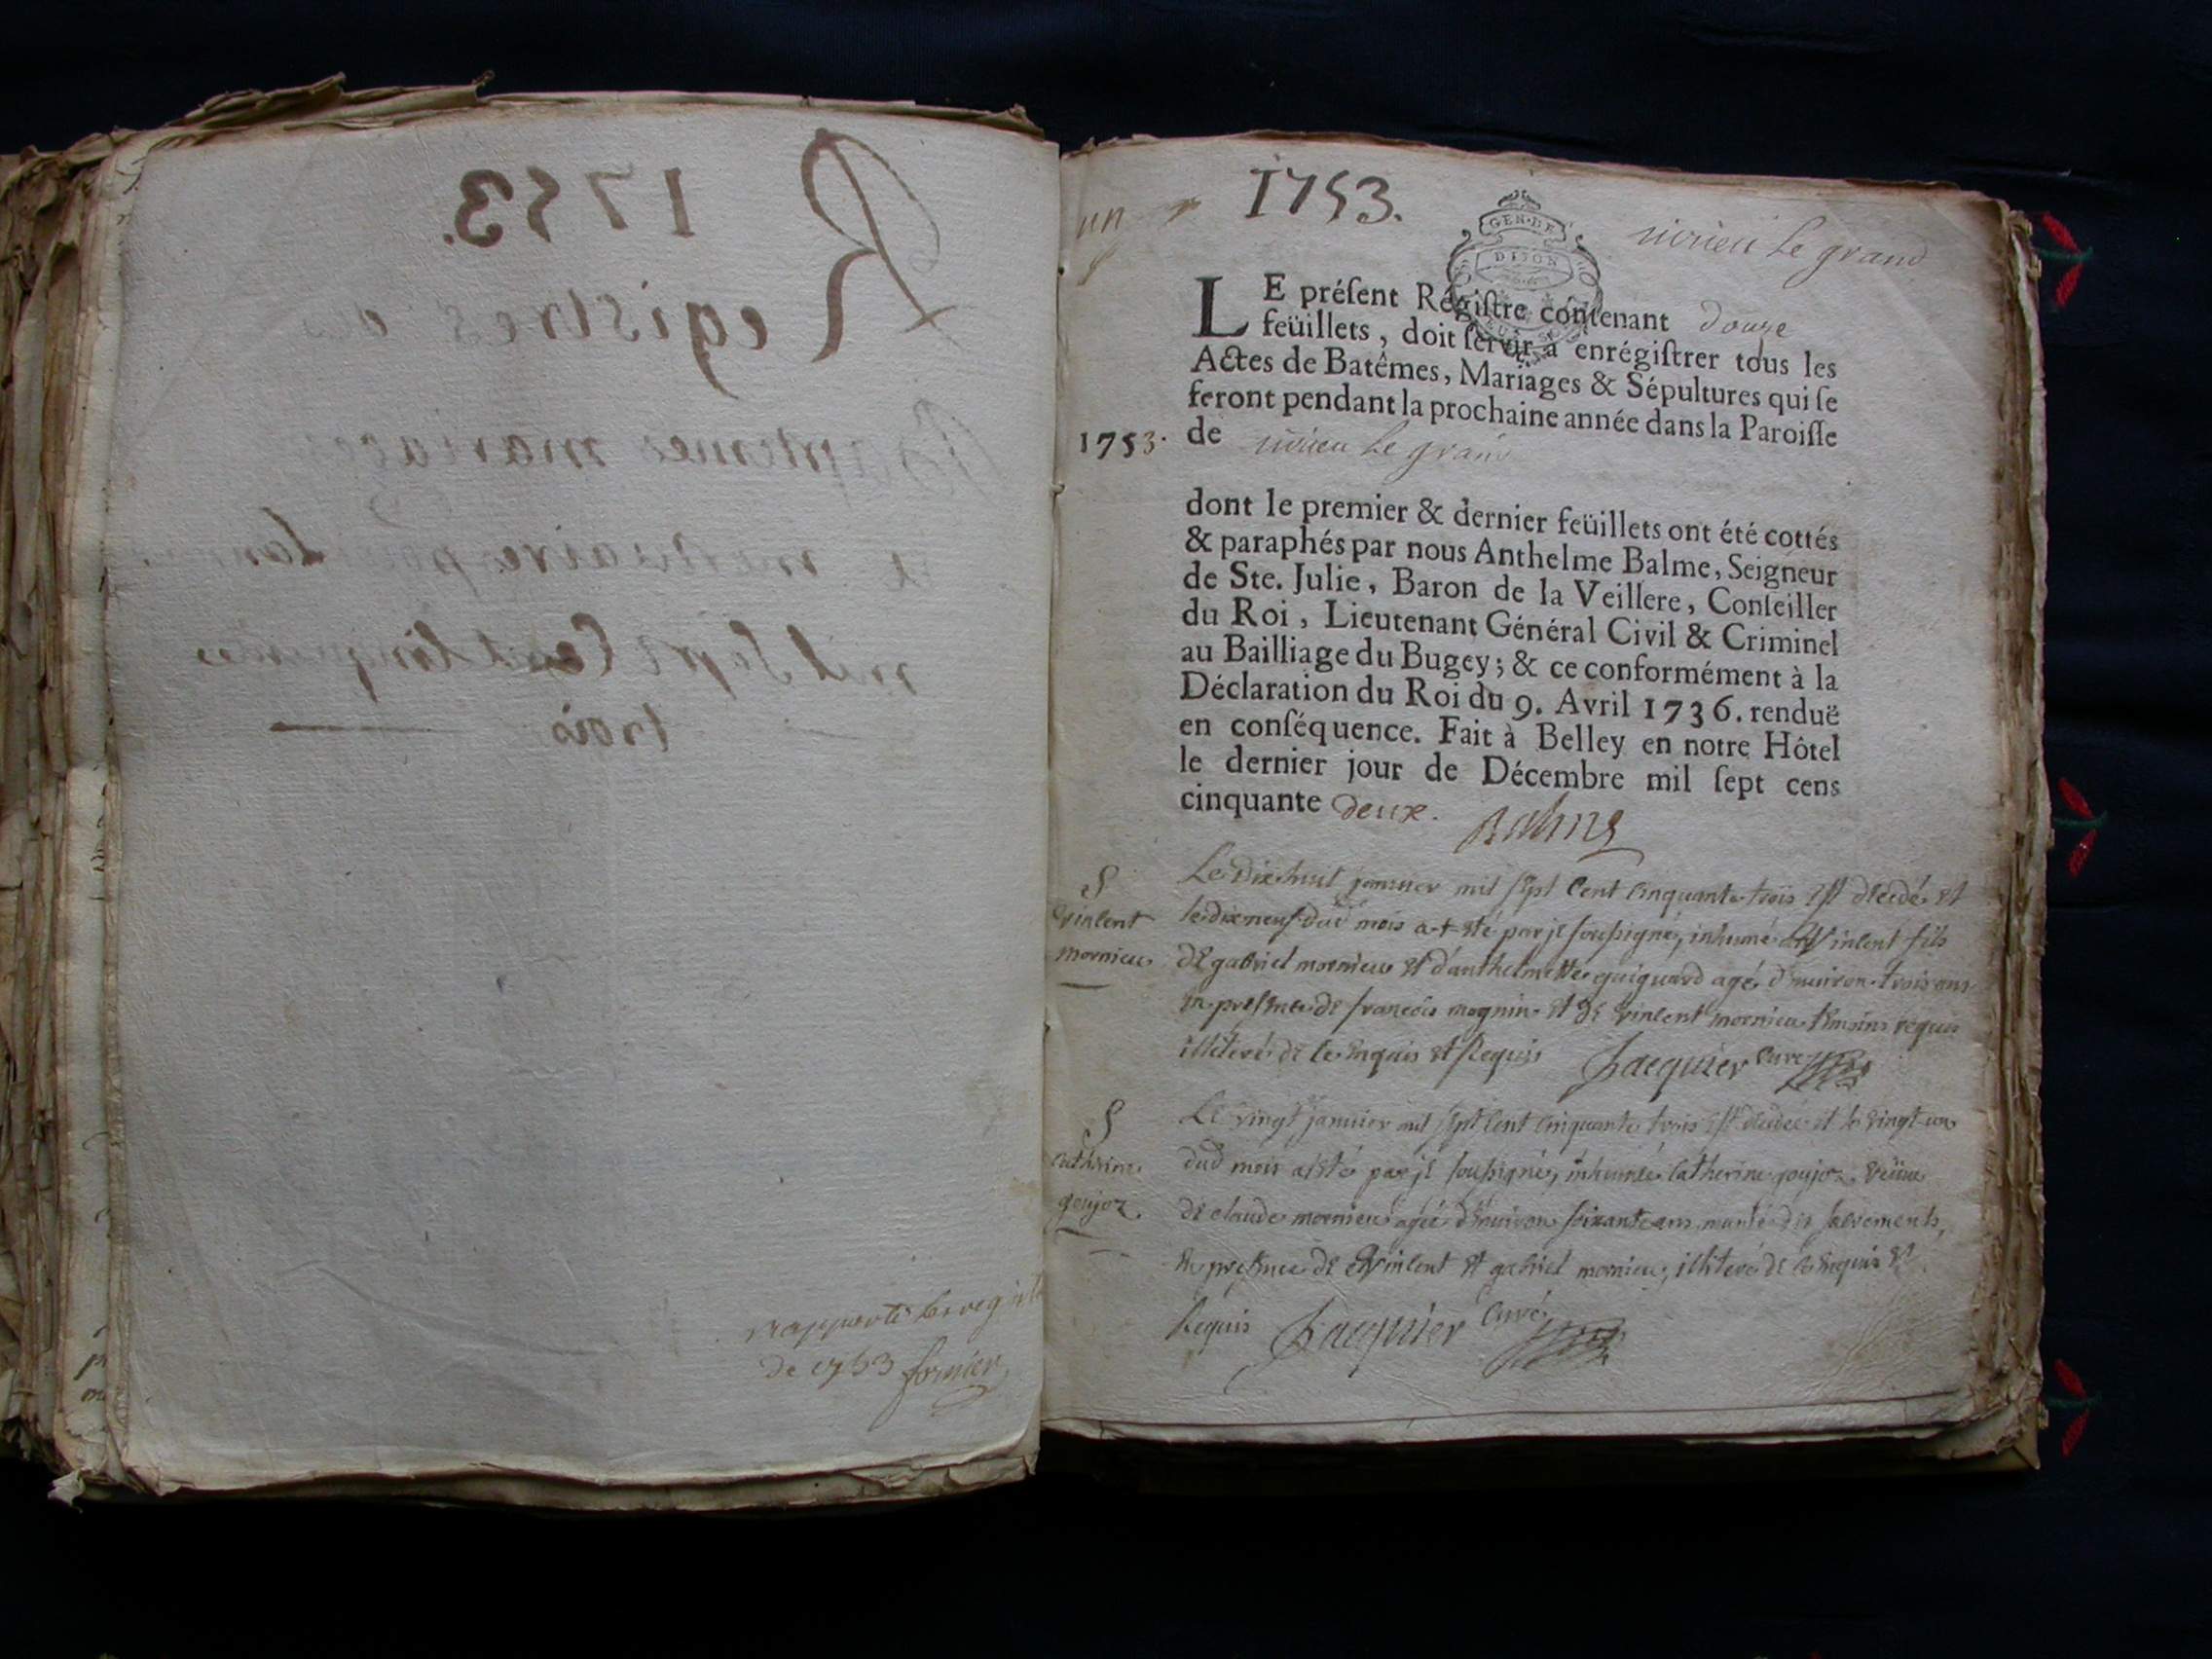 1753.
Registres des
Baptemes mariages
et mortuaires pour Lannée
mil Sept Cent Cinquante
trois
rapporté les registre
de 1753 fornier
un
1753.
GEN·DE
DIJON
virieu Le grand
LE préſent Régiſtre contenant douze
feüillets, doit ſervir à enrégiſtrer tous les
Actes de Batêmes, Mariages & Sépultures qui ſe
feront pendant la prochaine année dans la Paroiſſe
1753. de virieu Le grand
dont le premier & dernier feüillets ont été cottés
& paraphés par nous Anthelme Balme, Seigneur
de Ste. Julie, Baron de la Veillere, Conſeiller
du Roi, Lieutenant Général Civil & Criminel
au Bailliage du Bugey; & ce conformément à la
Déclaration du Roi du 9. Avril 1736. renduë
en conſéquence. Fait à Belley en notre Hôtel
le dernier jour de Décembre mil ſept cens
cinquante deux. Balme
S
vincent
mornieu
Le dix huit janvier mil sept cent cinquante trois est decédé et
le dixneuf dud mois a été par je soussigné, inhumé vincent fils
de gabriel mornieu et d'anthelmette guiguard agé d'environ trois ans
en presence de françois mognin et de vincent mornieu temoins requis
illiteré de ce enquis et Requis Jacquier curé
S
catherine
goujoz
Le vingt janvier mil sept cent cinquante trois est decedee et le vingt un
dud mois a été par je soussigné, inhumée catherine goujoz veüve
de claude mornieu agée d'environ soixante ans munie des sacrements,
en presence de vincent et gabriel mornieu, illiteré de ce enquis et
Requis Jacquier curé